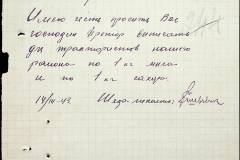 Имею честь просить Вас
господин Префор выписать
для трактористов нашего
района по 1 кг мяса
и по 1 кг сахару.
14/III-43.